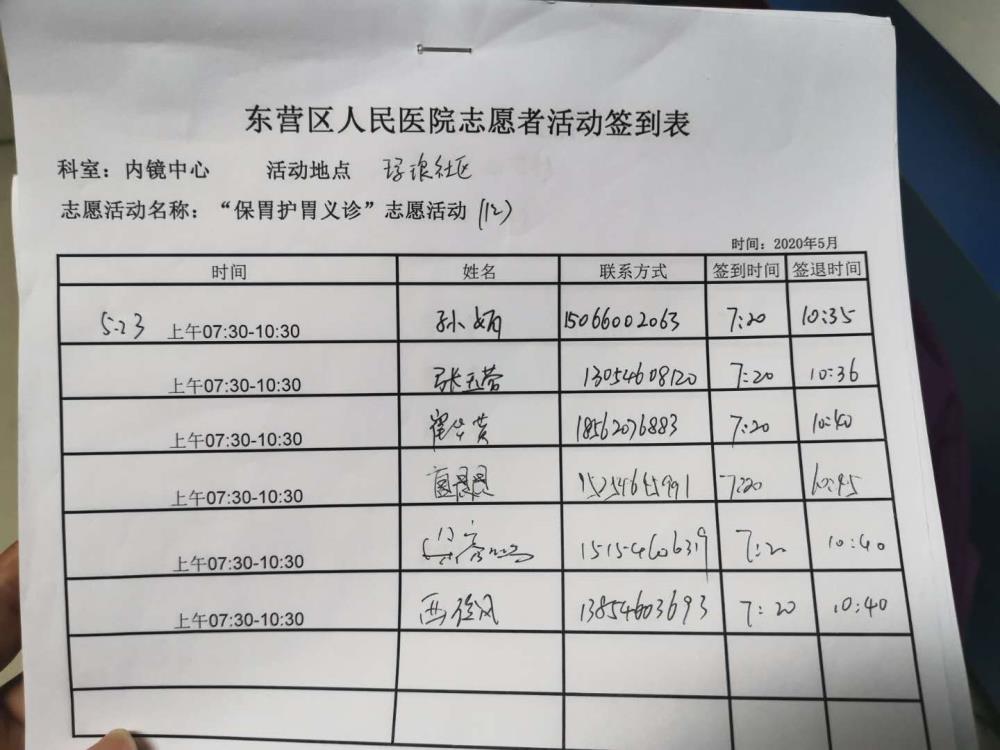 东营区人民医院志愿者活动签到表
科室：内镜中心 活动地点 社区
志愿活动名称：“保胃护胃义诊”志愿活动 (12)
时间：2020年5月
时间 姓名 联系方式 签到时间 签退时间
5.23 上午07:30-10:30 孙娟 15066002063 7:20 10:35
上午07:30-10:30 张玉营 13054608120 7:20 10:36
上午07:30-10:30 18562076883 7:20 10:40
上午07:30-10:30 7:20 10:45
上午07:30-10:30 7:20 10:40
上午07:30-10:30 13854603693 7:20 10:40